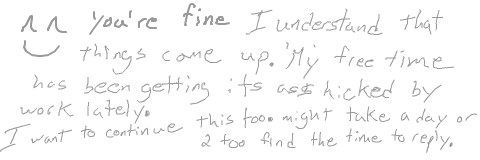 You're fine I understand that
things come up. My free time
has been getting its ass kicked by
work lately.
I want to continue this too. might take a day or
2 too find the time to reply.